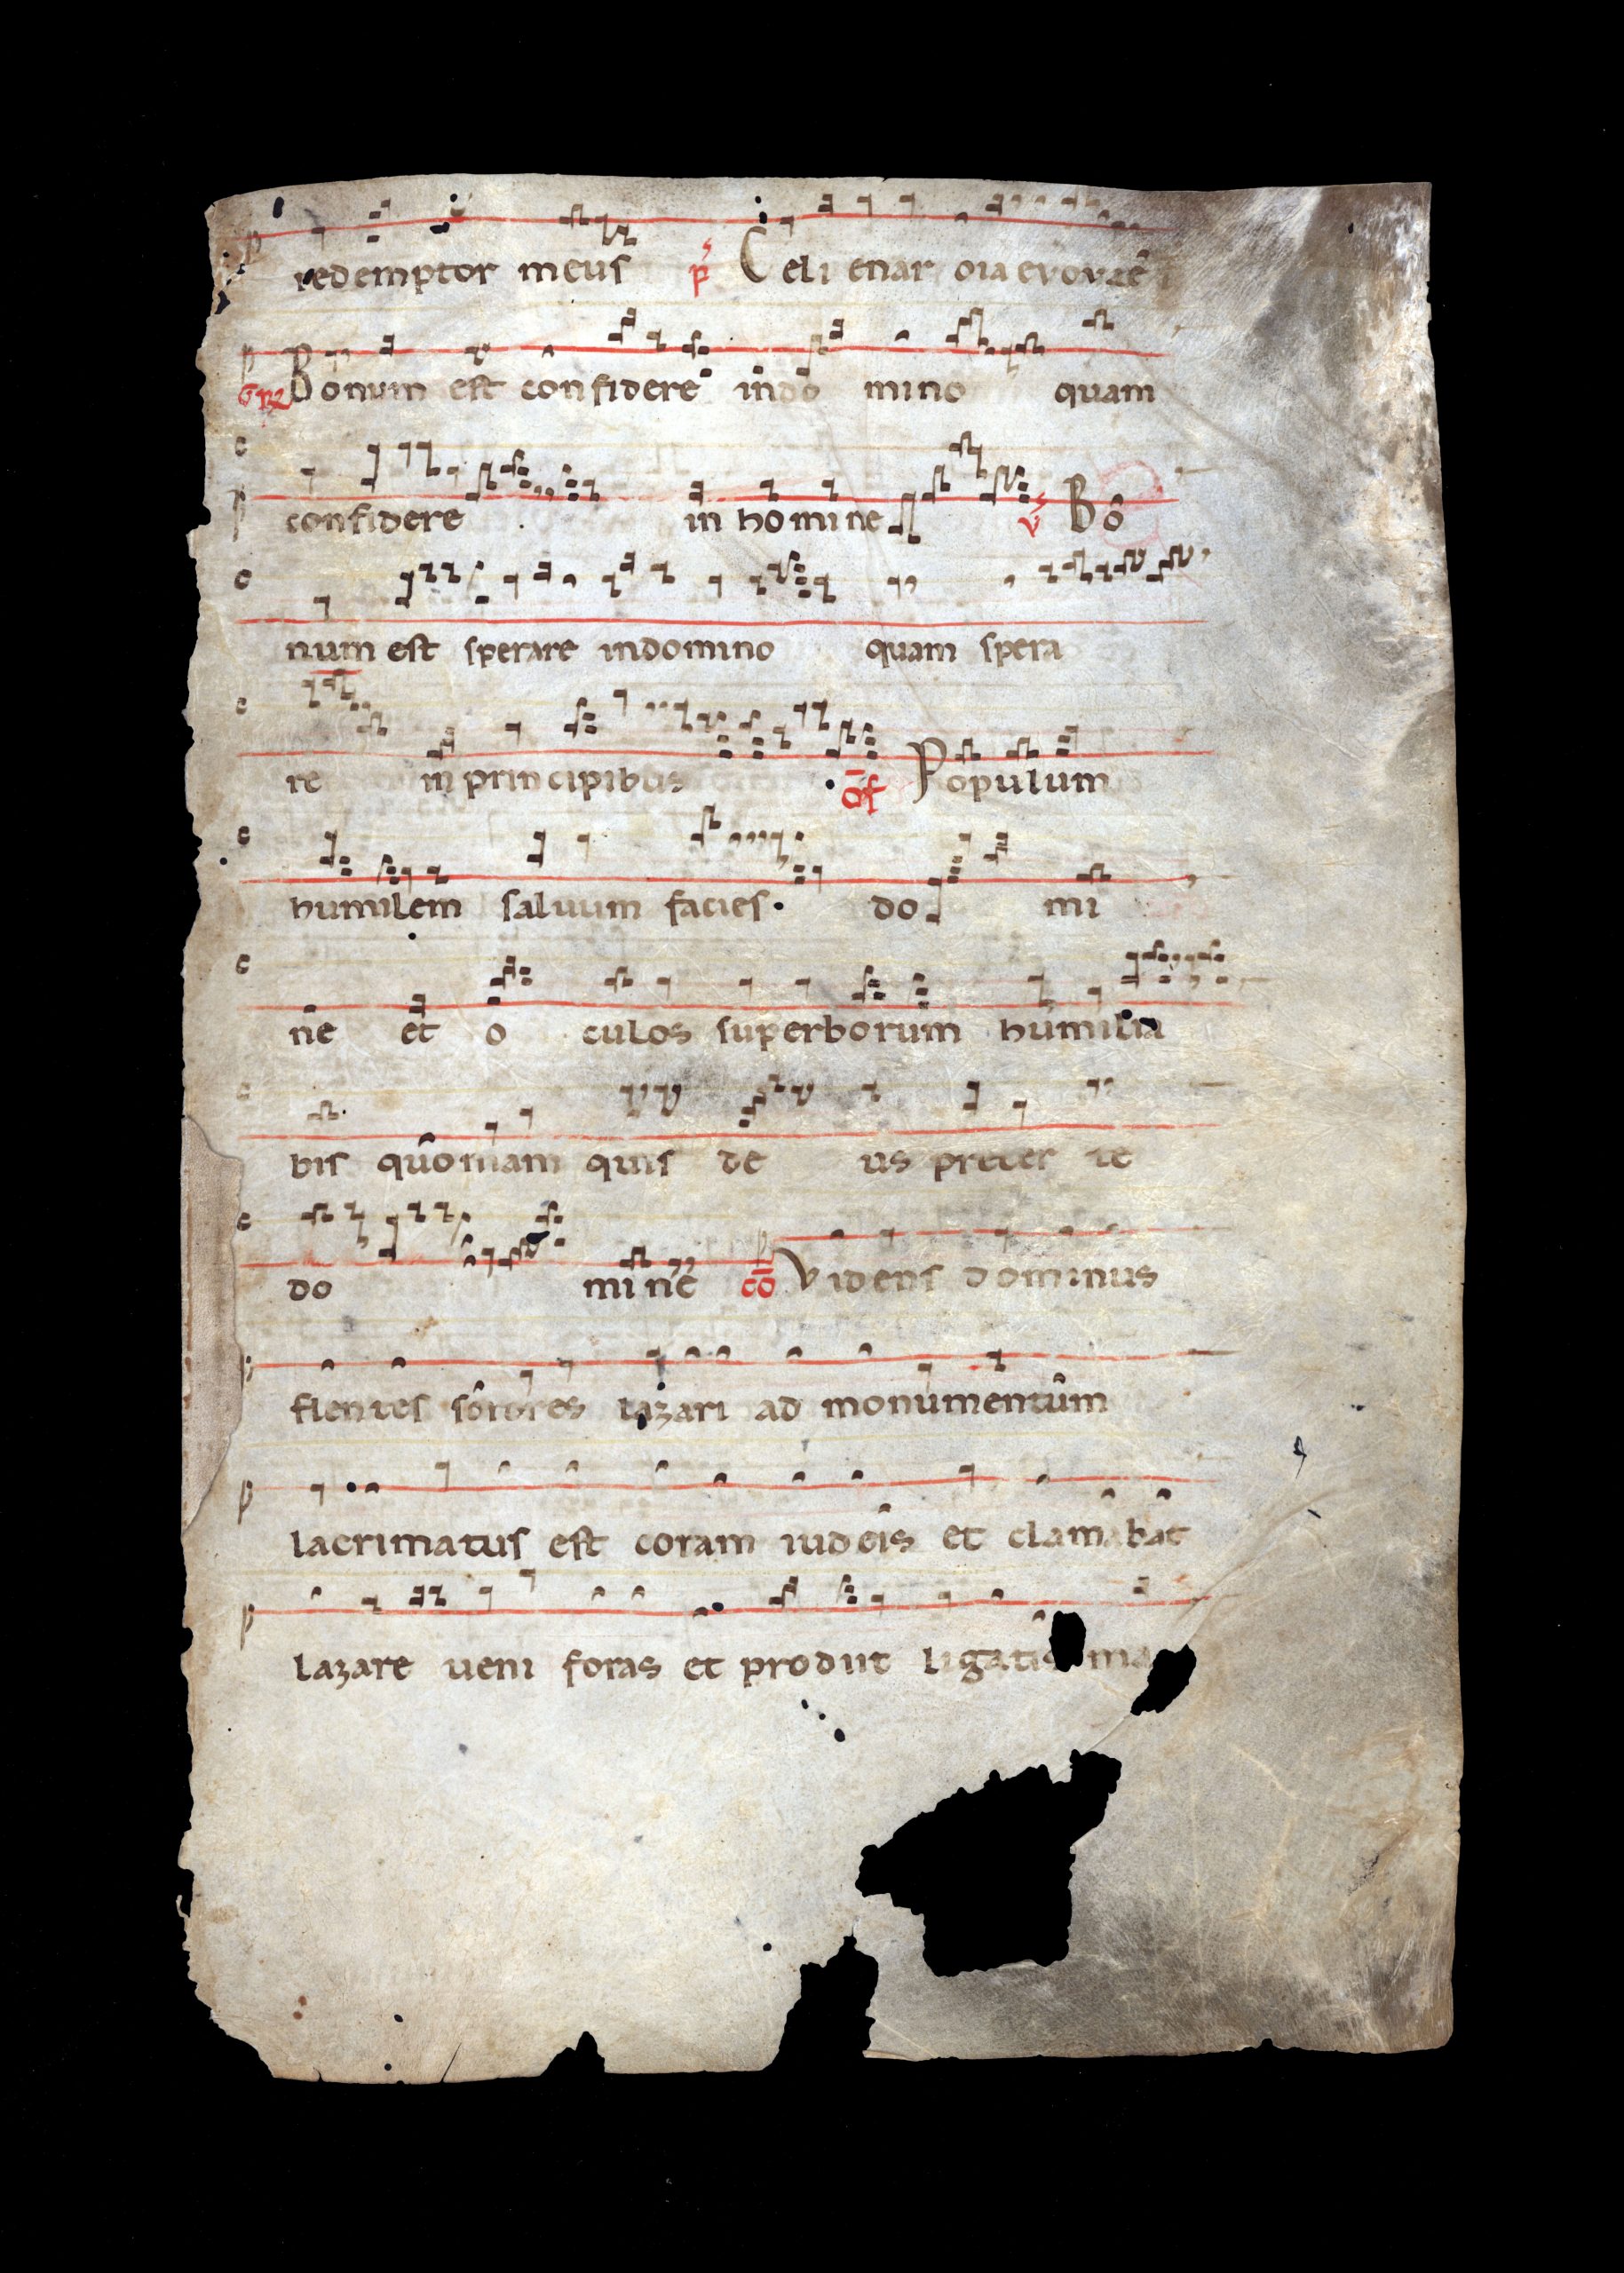 redemptor meus p̄ Celi enar oia evovae
Gr Bonum est confidere in do mino quam
confidere in homine v Bo
num est sperare indomino quam spera
re in principibus of Populum
humilem saluum facies. do mi
ne et o culos superborum humilia
bis quoniam quis de us preter te
do mine cō Videns dominus
flentes sorores lazari ad monumentum
lacrimatus est coram iudeis et clamabat
lazare ueni foras et prodiit ligatis ma